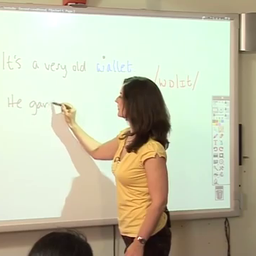 It's a very old wallet
/wɒlɪt/
He gav